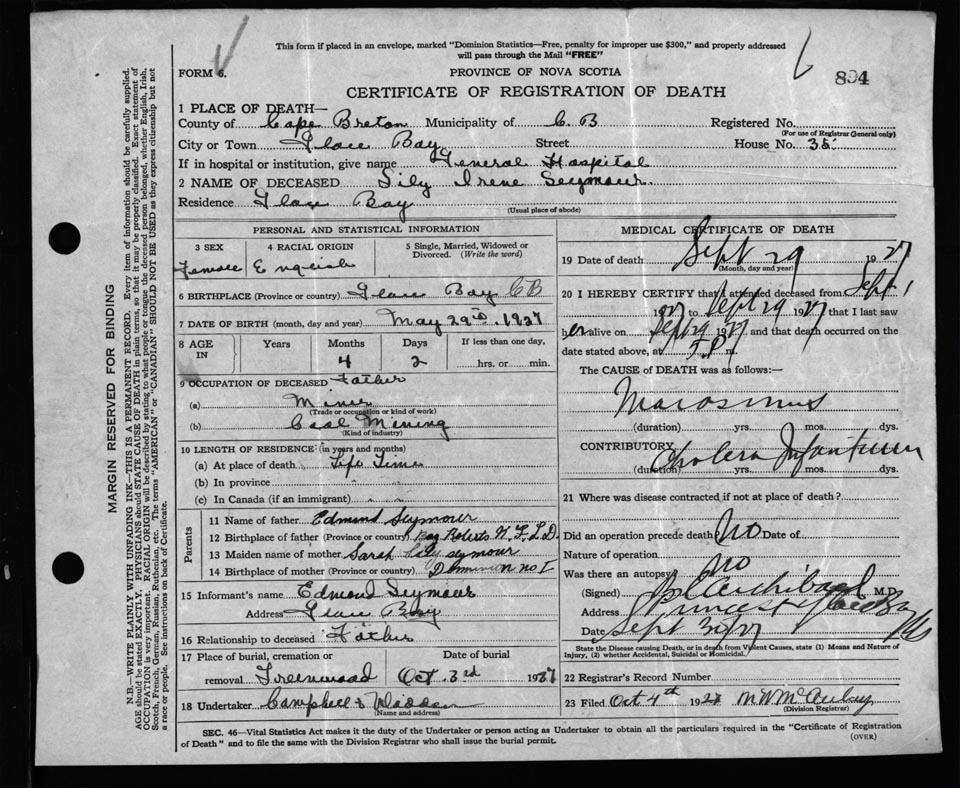 This form if placed in an envelope, marked "Dominion Statistics—Free, penalty for improper use $300," and properly addressed
will pass through the Mail "FREE"
FORM 6.
PROVINCE OF NOVA SCOTIA
894
CERTIFICATE OF REGISTRATION OF DEATH
1 PLACE OF DEATH—
County of Cape Breton Municipality of C. B Registered No.
(For use of Registrar General only)
City or Town Glace Bay Street House No. 35
If in hospital or institution, give name General Hospital
2 NAME OF DECEASED Lily Irene Seymour.
Residence Glace Bay
(Usual place of abode)
PERSONAL AND STATISTICAL INFORMATION
3 SEX 4 RACIAL ORIGIN 5 Single, Married, Widowed or
Divorced. (Write the word)
Female English
6 BIRTHPLACE (Province or country) Glace Bay CB
7 DATE OF BIRTH (month, day and year) May 29th, 1927
8 AGE
IN
Years Months Days If less than one day,
4 2 hrs. or min.
9 OCCUPATION OF DECEASED Father
(a) Miner
(Trade or occupation or kind of work)
(b) Coal Mining
(Kind of industry)
10 LENGTH OF RESIDENCE (in years and months)
(a) At place of death Life Time
(b) In province " "
(c) In Canada (if an immigrant) " "
Parents
11 Name of father Edmund Seymour
12 Birthplace of father (Province or country) Bay Roberts N. F. L. D.
13 Maiden name of mother Sarah Seymour
14 Birthplace of mother (Province or country) Dominion no 1
15 Informant's name Edmond Seymour
Address Glace Bay
16 Relationship to deceased Father
17 Place of burial, cremation or Date of burial
removal Greenwood Oct. 3rd 1927
18 Undertaker Campbell & Madden
(Name and address)
MEDICAL CERTIFICATE OF DEATH
19 Date of death Sept 29 1927
(Month, day and year)
20 I HEREBY CERTIFY that I attended deceased from Sept 1
1927 to Sept 29 1927 that I last saw
er alive on Sept 29 1927 and that death occurred on the
date stated above, at 7.P m.
The CAUSE of DEATH was as follows:—
Marasmus
(duration) yrs. mos. dys.
CONTRIBUTORY Cholera Infantum
(duration) yrs. mos. dys.
21 Where was disease contracted if not at place of death?
Did an operation precede death No Date of
Nature of operation
Was there an autopsy No
(Signed) Archibald M.D.
Address Glace Bay
Date Sept 30/27
State the Disease causing Death, or in death from Violent Causes, state (1) Means and Nature of
Injury, (2) whether Accidental, Suicidal or Homicidal.
22 Registrar's Record Number
23 Filed Oct 4th 1927
(Division Registrar)
SEC. 46—Vital Statistics Act makes it the duty of the Undertaker or person acting as Undertaker to obtain all the particulars required in the "Certificate of Registration
of Death" and to file the same with the Division Registrar who shall issue the burial permit. (OVER)
MARGIN RESERVED FOR BINDING
N.B.—WRITE PLAINLY WITH UNFADING INK—THIS IS A PERMANENT RECORD. Every item of information should be carefully supplied.
AGE should be stated EXACTLY. PHYSICIANS should STATE CAUSE OF DEATH in plain terms, so that it may be properly classified. Exact statement of
OCCUPATION is very important. RACIAL ORIGIN will be described by stating to what people or tongue the deceased person belonged, whether English, Irish,
Scotch, French, German, Russian, Ruthenian, etc. The terms "AMERICAN" or "CANADIAN" SHOULD NOT BE USED as they express citizenship but not
a race or people. See instructions on back of Certificate.